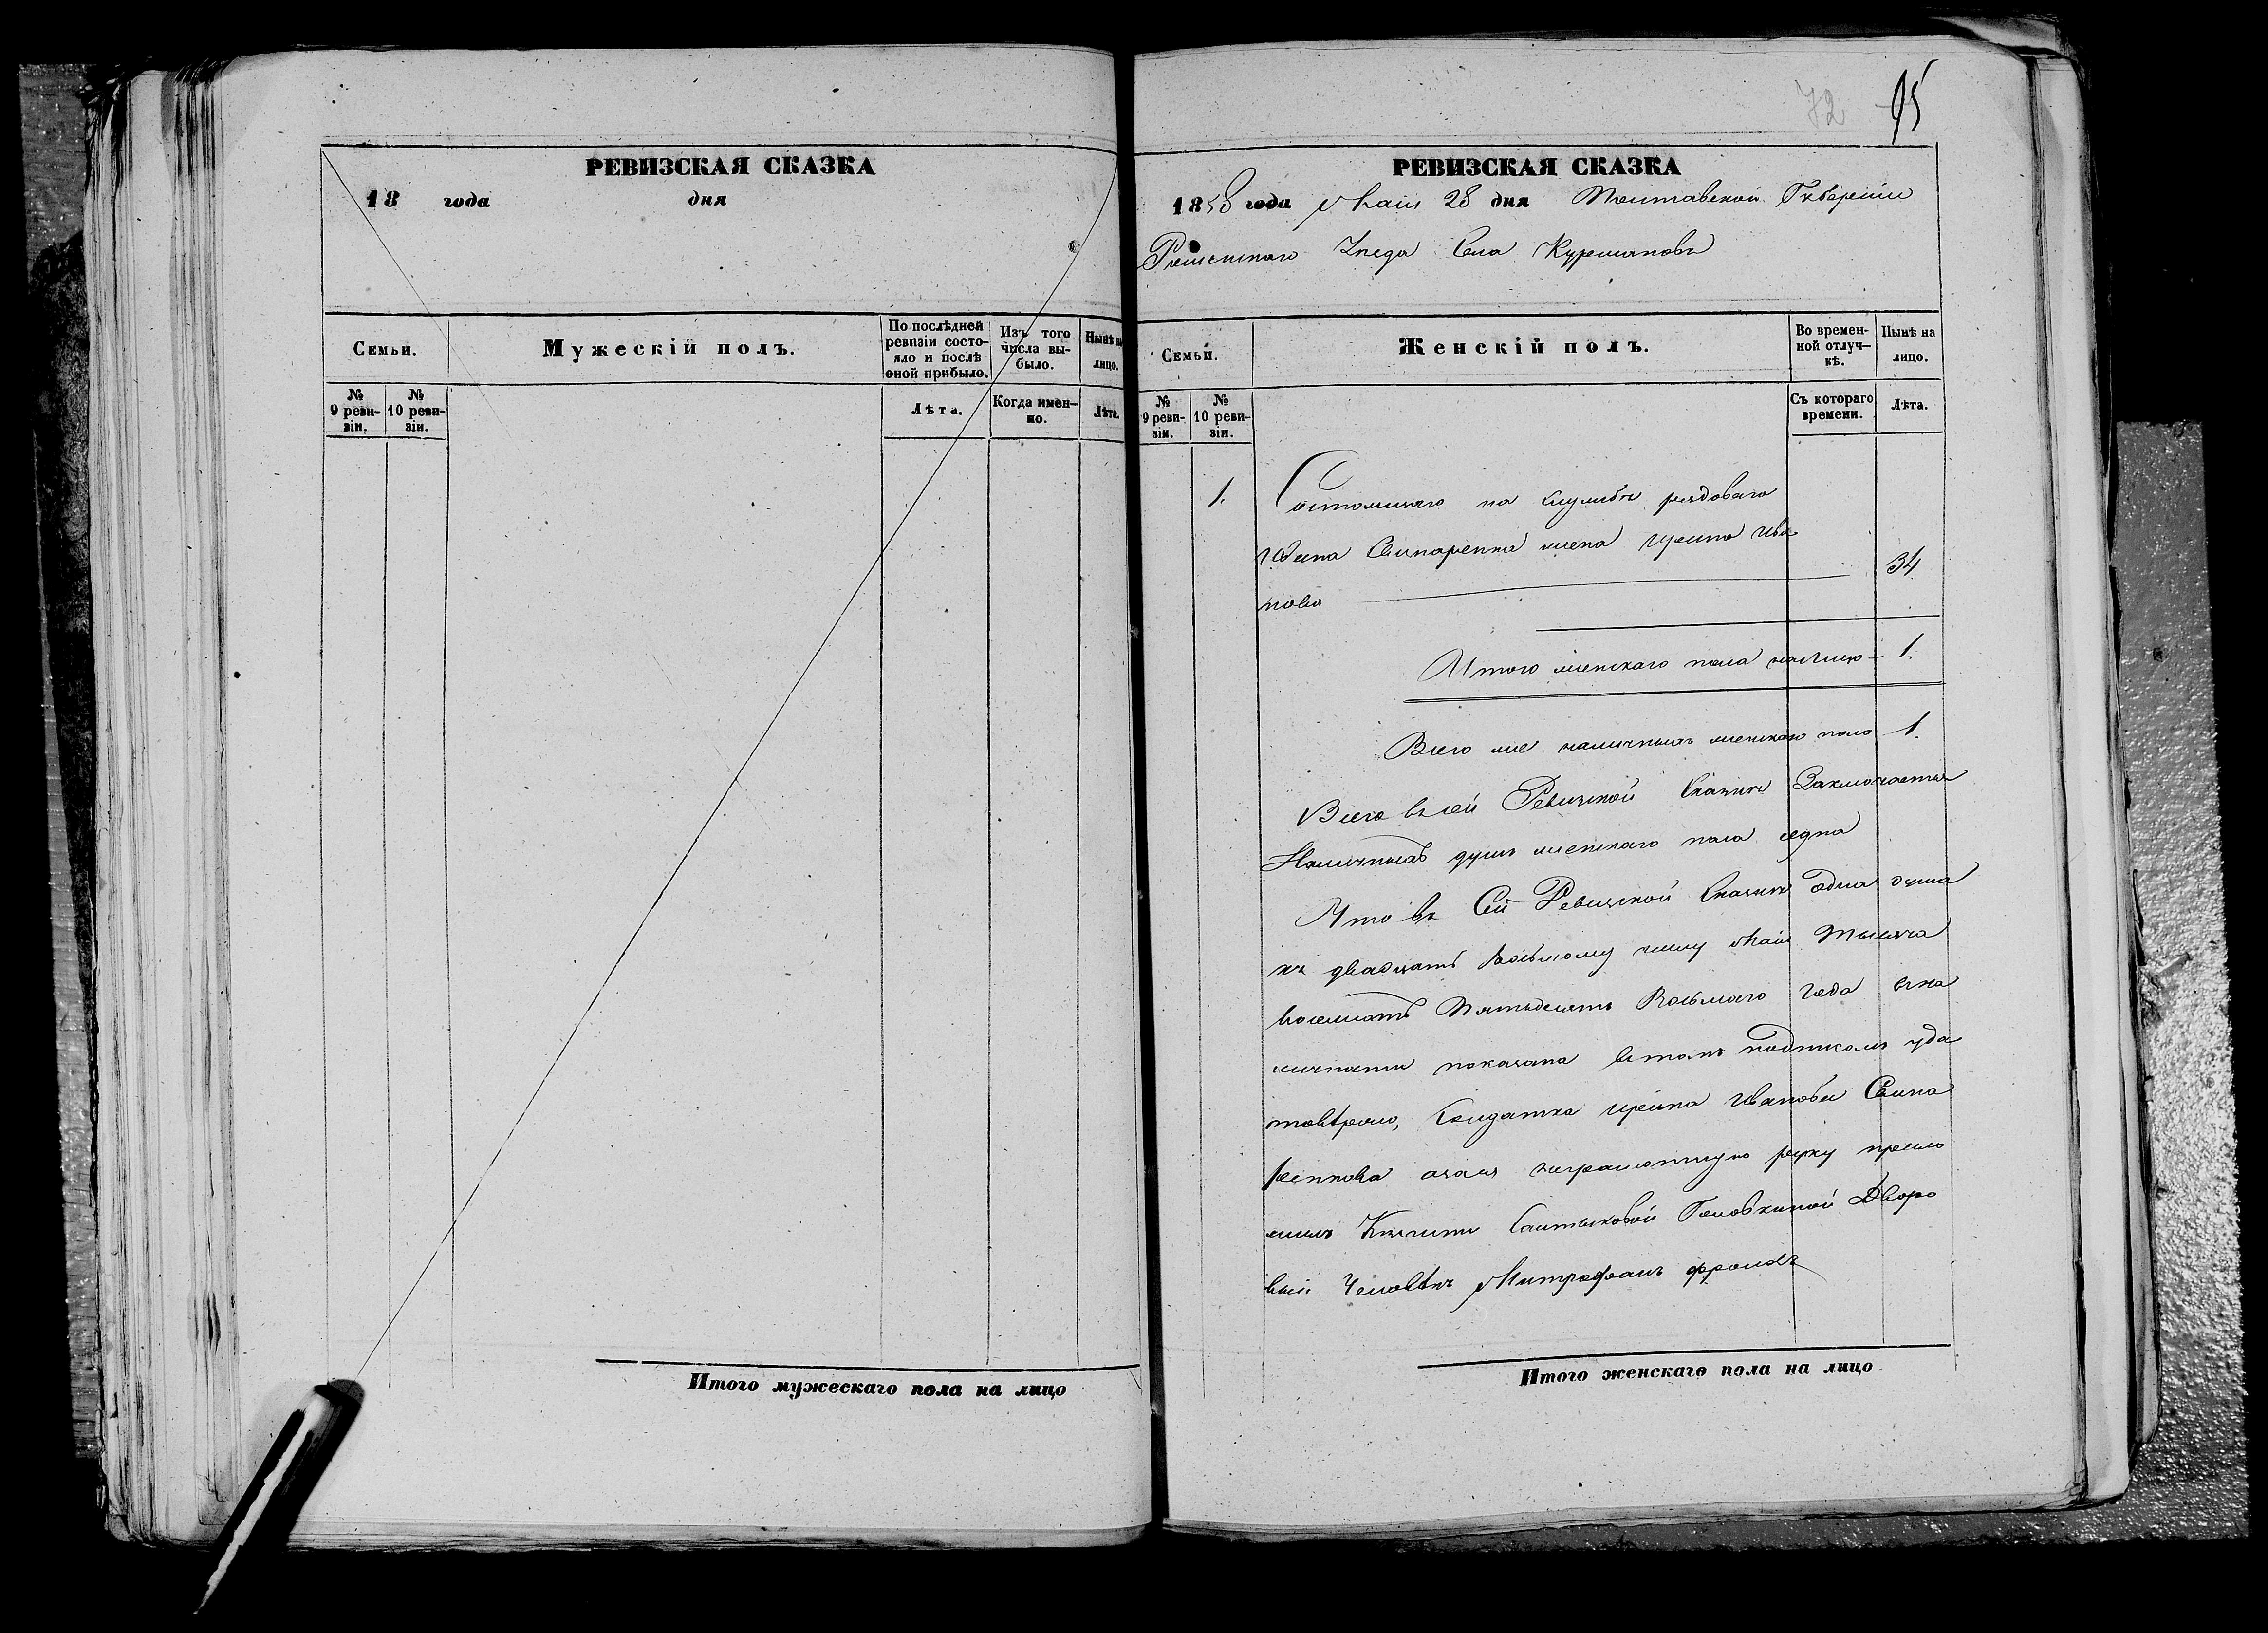 72 95
РЕВИЗСКАЯ СКАЗКА
18 года дня
Семьи.
Мужескій полъ.
По послѣдней
ревизіи состо-
яло и послѣ
оной прибыло.
Изъ того
числа вы-
было.
Нынѣ на
лицо.
№
9 реви-
зіи.
№
10 реви-
зіи.
Лѣта.
Когда имен-
но.
Лѣта.
Итого мужескаго пола на лицо
РЕВИЗСКАЯ СКАЗКА
1858 года Маія 28 дня Полтавской Губерніи
Роменскаго Уезда Села
Семьи.
Женскій полъ.
Во времен-
ной отлуч-
кѣ.
Нынѣ на
лицо.
№
9 реви-
зіи.
№
10 реви-
зіи.
Съ котораго
времени.
Лѣта.
1. Состоящаго на службѣ рядоваго
жена Ирина Ива
нова 34
Итого женскаго пола налицо 1.
Всего же наличныхъ женскаго пола 1.
Всего въ сей Ревизской Сказкѣ Заключается
Наличныхъ душъ женскаго пола една
Что въ Сей Ревизской Сказкѣ одна душа
къ двадцать восьмому числу Маія Тысяча
восемсотъ Пятьдесятъ Восьмаго года въ на
личности показана въ томъ подпискою удо
товѣряю, Солдатка Ирина Иванова
неграмотную руку прило
жилъ Княгини Салтыковой Головкиной Дворо
вый Человѣкъ Митрофанъ
Итого женскаго пола на лицо